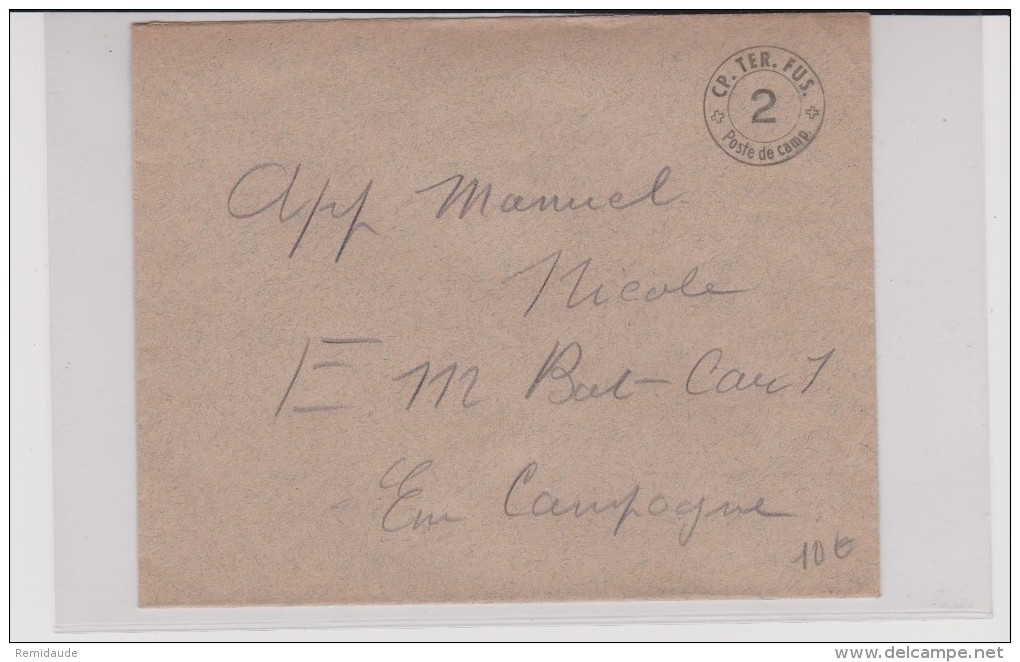 CP. TER. FUS.
2
Poste de camp.
App Manuel
Nicole
E. M Bat-Car 1
En Campagne
10 €
Remidaude
www.delcampe.net